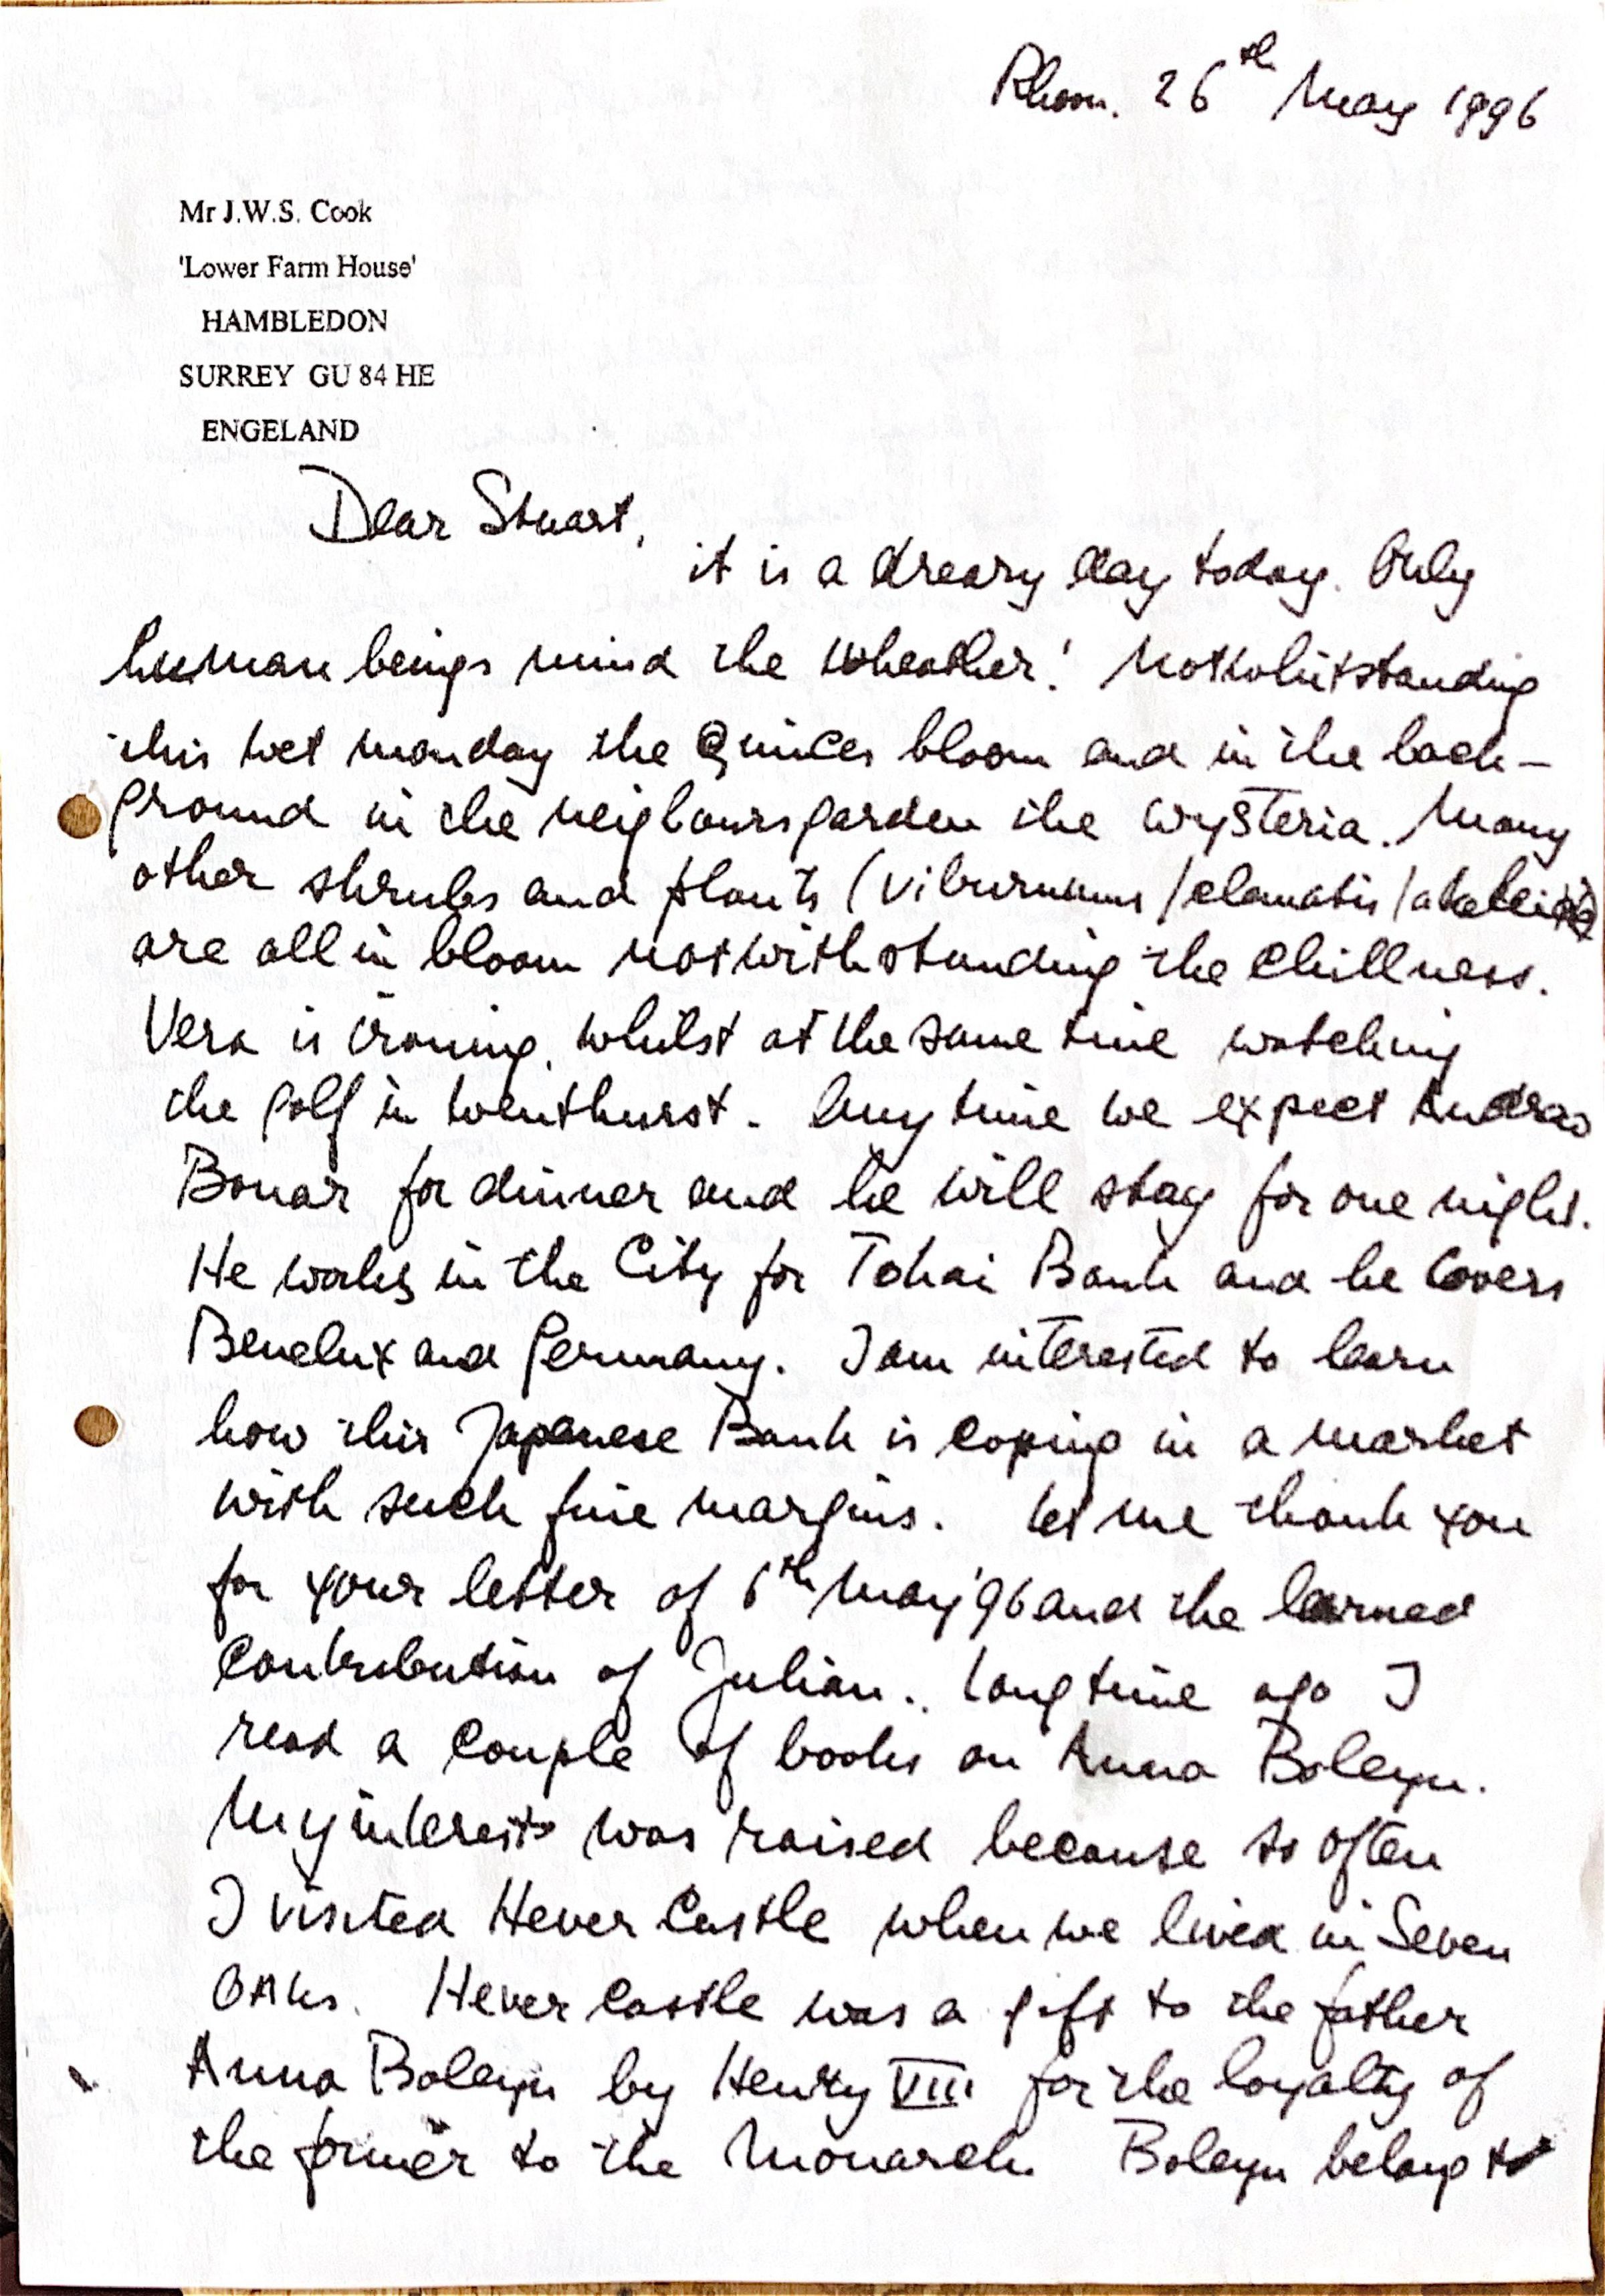 Rhoon. 26th May 1996
Mr J.W.S. Cook
'Lower Farm House'
HAMBLEDON
SURREY GU 84 HE
ENGELAND
Dear Stuart,
it is a dreary day today. Only
human beings mind the wheather! Notwhitstanding
this wet monday the Quinces bloom and in the back-
ground in the neigboursgarden the wysteria. Many
other shrubs and plants (viburnums / clematis /
are all in bloom notwithstanding the chillness.
Vera is ironing, whilst at the same time watching
the golf in Wenthurst. Any time we expect Andras
Bonar for dinner and he will stay for one night.
He works in the City for Tokai Bank and he covers
Benelux and Germany. I am interested to learn
how this Japanese Bank is coping in a market
with such fine margins. Let me thank you
for your letter of 6th May '96 and the learned
contribution of Julian. Long time ago I
read a couple of books on Anna Boleyn.
My interest was raised because so often
I visited Hever Castle when we lived in Seven
Oaks. Hever Castle was a gift to the father
Anna Boleyn by Henry VIII for the loyalty of
the former to the Monarch. Boleyn belong to